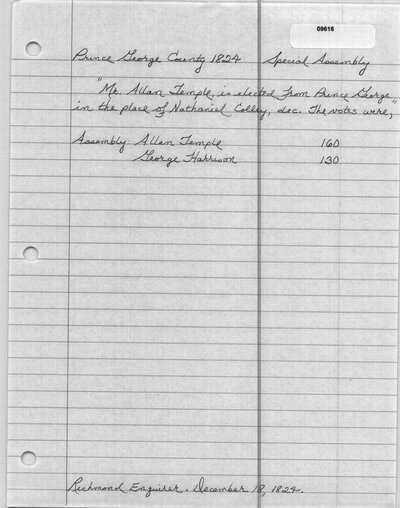 09618
Prince George County 1824 Special Assembly
"Mr. Allan Temple, is elected from Prince George
in the place of Nathaniel Colley, dec. The votes were,"
Assembly: Allan Temple 160
George Harrison 130
Richmond Enquirer. December 18, 1824.